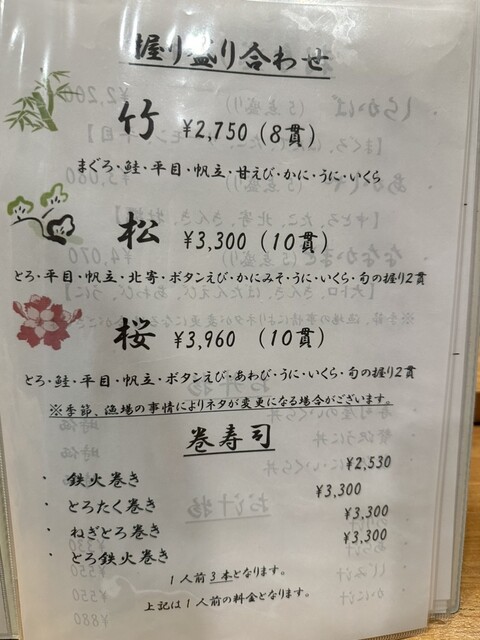 握り盛り合わせ
竹 ¥2,750 (8貫)
まぐろ・鮭・平目・帆立・甘えび・かに・うに・いくら
松 ¥3,300 (10貫)
とろ・平目・帆立・北寄・ボタンえび・かにみそ・うに・いくら・旬の握り2貫
桜 ¥3,960 (10貫)
とろ・鮭・平目・帆立・ボタンえび・あわび・うに・いくら・旬の握り2貫
※季節、漁場の事情によりネタが変更になる場合がございます。
巻寿司
・鉄火巻き ¥2,530
・とろたく巻き ¥3,300
・ねぎとろ巻き ¥3,300
・とろ鉄火巻き ¥3,300
1人前3本となります。
上記は1人前の料金となります。